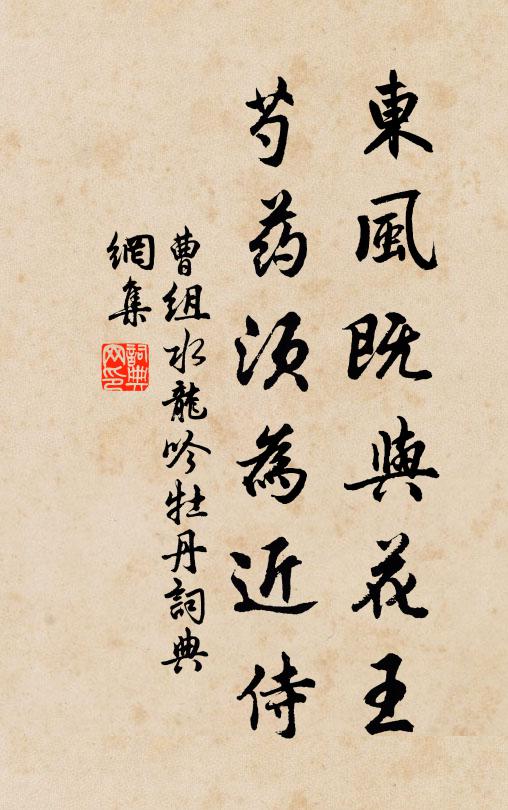 東風既與花王
芍药须為近侍
曹组水龍吟牡丹詞典
網集
詞典
网印